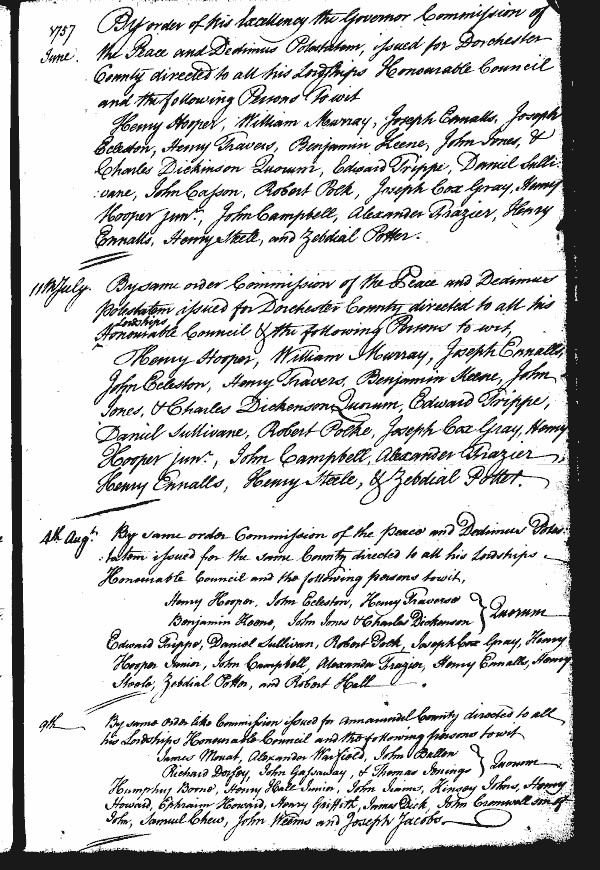 1757
June.
By order of his Excellency the Governor Commission of
the Peace and Dedimus Potestatem, issued for Dorchester
County directed to all his Lordships Honourable Council
and the following Persons to wit
Henry Hooper, William Murray, Joseph Ennalls, Joseph
Ecleston, Henry Travers, Benjamin Keene, John Jones, &
Charles Dickinson Quorum, Edward Trippe, Daniel Sulli
:vane, John Casson, Robert Polk, Joseph Cox Gray, Henry
Hooper junr., John Campbell, Alexander Frazier, Henry
Ennalls, Henry Steele, and Zebdial Potter.
11th July.
By same order Commission of the Peace and Dedimus
Potestatem issued for Dorchester County directed to all his
Lordships
Honourable Council & the following Persons to wit,
Henry Hooper, William Murray, Joseph Ennalls,
John Ecleston, Henry Travers, Benjamin Keene, John
Jones, & Charles Dickenson Quorum, Edward Trippe,
Daniel Sullivane, Robert Polke, Joseph Cox Gray, Henry
Hooper junr., John Campbell, Alexander Frazier
Henry Ennalls, Henry Steele, & Zebdial Potter.
4th Augt.
By same order Commission of the peace and Dedimus Potes:
:tatem issued for the same County directed to all his Lordships
Honourable Council and the following persons to wit,
Henry Hooper, John Ecleston, Henry Traverse
Benjamin Keene, John Jones & Charles Dickenson } Quorum
Edward Trippe, Daniel Sullivan, Robert Polk, Joseph Cox Gray, Henry
Hooper Junior, John Campbell, Alexander Frazier, Henry Ennalls, Henry
Steele, Zebdial Potter, and Robert Hall
9th
By same order like Commission issued for Annarundel County directed to all
his Lordships Honourable Council and the following persons to wit
James Mouat, Alexander Warfield, John Bullen
Richard Dorsey, John Gassaway, & Thomas Jenings } Quorum
Humphry Boone, Henry Hall Junior, John Ijams, Kinsey Johns, Henry
Howard, Ephraim Howard, Henry Griffith, James Dick, John Cromwell son of
John, Samuel Chew, John Weems and Joseph Jacobs